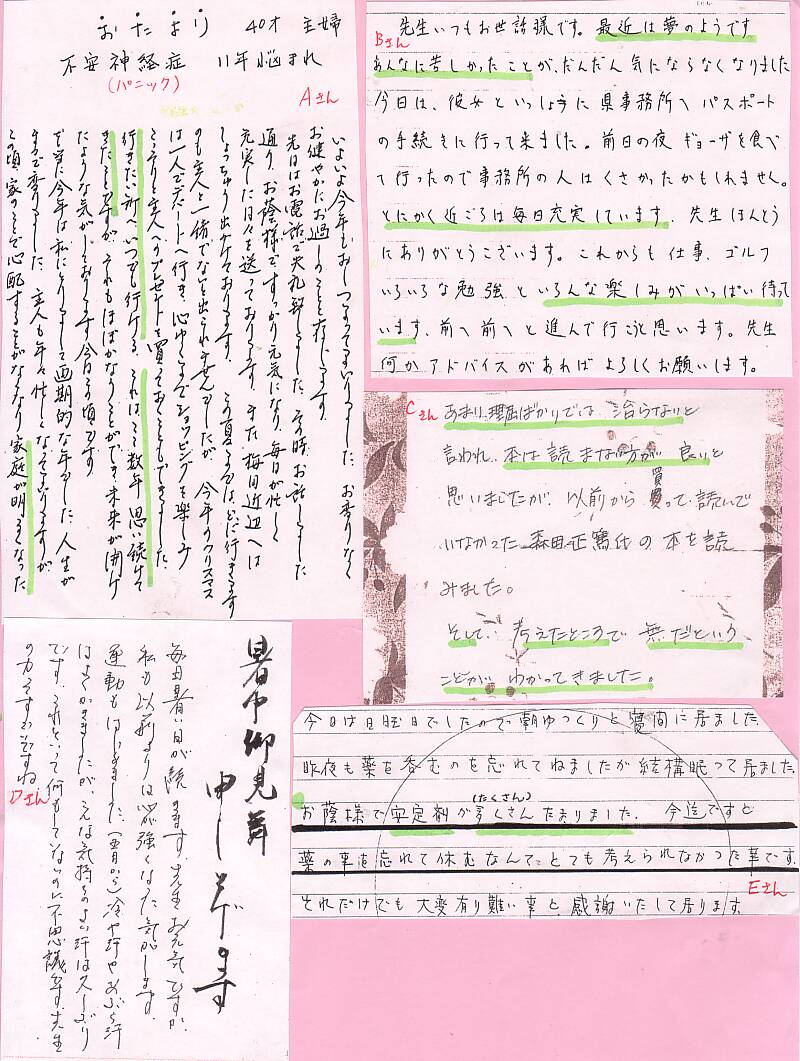 おたより 40才 主婦
不安神経症 11年悩まれ
(パニック)
Aさん
いよいよ今年もおしつまってまいりました。お変りなく
お健やかにお過しのことと存じます。
先日はお電話で失礼致しました。その時お話しました
通り、お蔭様ですっかり元気になり、毎日が忙しく
充実した日々を送っております。また梅田近辺へは
しょっちゅう出かけております。この夏までは どこに行きますす
のも主人と一緒でないと出られませんでしたが、今年のクリスマス
は一人でデパートへ行き、心ゆくまでショッピングを楽しみ
こっそりと主人へのプレゼントを買っておくこともできました。
行きたい所へいつでも行ける。これはここ数年 思い続けて
きたことですが、それもほぼかなうことができ、未来が開け
たような気がしております今日この頃です。
で、まだ今年は私にとりまして画期的な年でした。人生が
まるで変りました。主人も年々忙しくなってまいりますが
この頃、家のことで心配することがなくなり 家庭が明るくなった
Bさん
先生いつもお世話様です。最近は夢のようです
あんなに苦しかったことが、だんだん気にならなくなりました
今日は、彼女といっしょに県事務所へパスポート
の手続きに行って来ました。前日の夜 ギョーザを食べ
て行ったので事務所の人はくさかったかもしれません。
とにかく近ごろは毎日充実しています。先生ほんとう
にありがとうございます。これからも仕事、ゴルフ
いろいろな勉強といろんな楽しみがいっぱい待って
います、前へ前へと進んで行こうと思います。先生
何かアドバイスがあればよろしくお願いします。
Cさん
あまり理屈ばかりでは、治らないと
言われ、本は読まない方が良いと
思いましたが、以前から買って読んで
いなかった 森田正篤氏の本を読
みました。
そして、考えたところで無だという
ことが、わかってきました。
暑中御見舞
申し上げます
毎日暑い日が続きます。先生お元気ですか。
私も以前よりは心が強くなった気がします。
運動もはじめました。(五月から)冷や汗やあぶら汗
はよくかきましたが、こんな気持ちのよい汗は久しぶり
です。それといって何もしてないのに不思議です。先生
の力ってすごいですね
Dさん
今日は日曜日でしたので朝ゆっくりと寝間に居ました。
昨夜も薬を呑むのを忘れてねましたが結構眠って居ました。
お蔭様で安定剤が多くさん(たくさん)たまりました。今迄ですと
薬の事を忘れて休むなんて、とても考えられなかった事です。
Eさん
それだけでも大変有り難い事と、感謝いたして居ります。